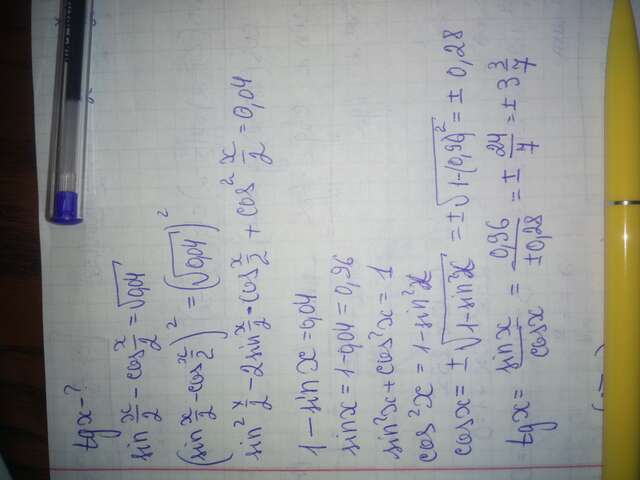 tgx - ?
sin x/2 - cos x/2 = √0,04
(sin x/2 - cos x/2)² = (√0,04)²
sin² x/2 - 2sin x/2 · cos x/2 + cos² x/2 = 0,04
1 - sin x = 0,04
sinx = 1-0,04 = 0,96
sin²x + cos²x = 1
cos²x = 1 - sin²x
cosx = ±√1-sin²x = ±√1-(0,96)² = ± 0,28
tgx = sinx/cosx = 0,96/±0,28 = ± 24/7 = ± 3 3/7